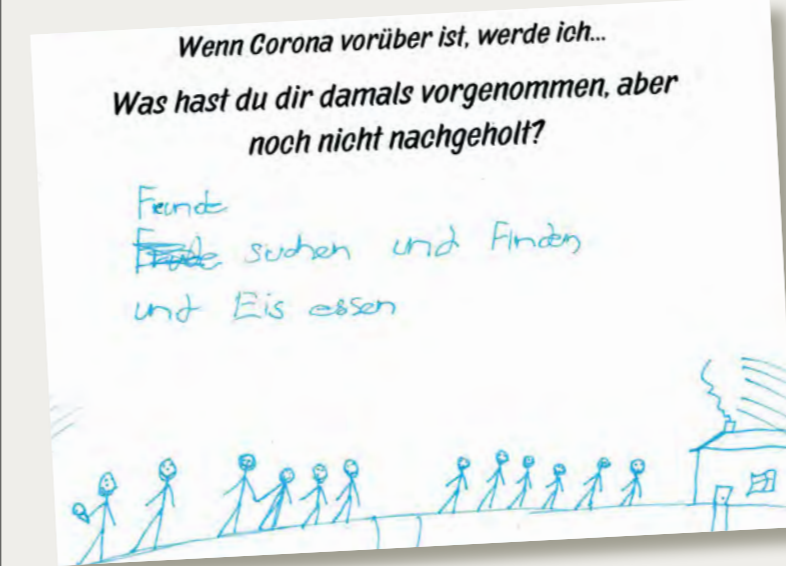 Wenn Corona vorüber ist, werde ich...
Was hast du dir damals vorgenommen, aber
noch nicht nachgeholt?
Feunde
suchen und Finden
und Eis essen